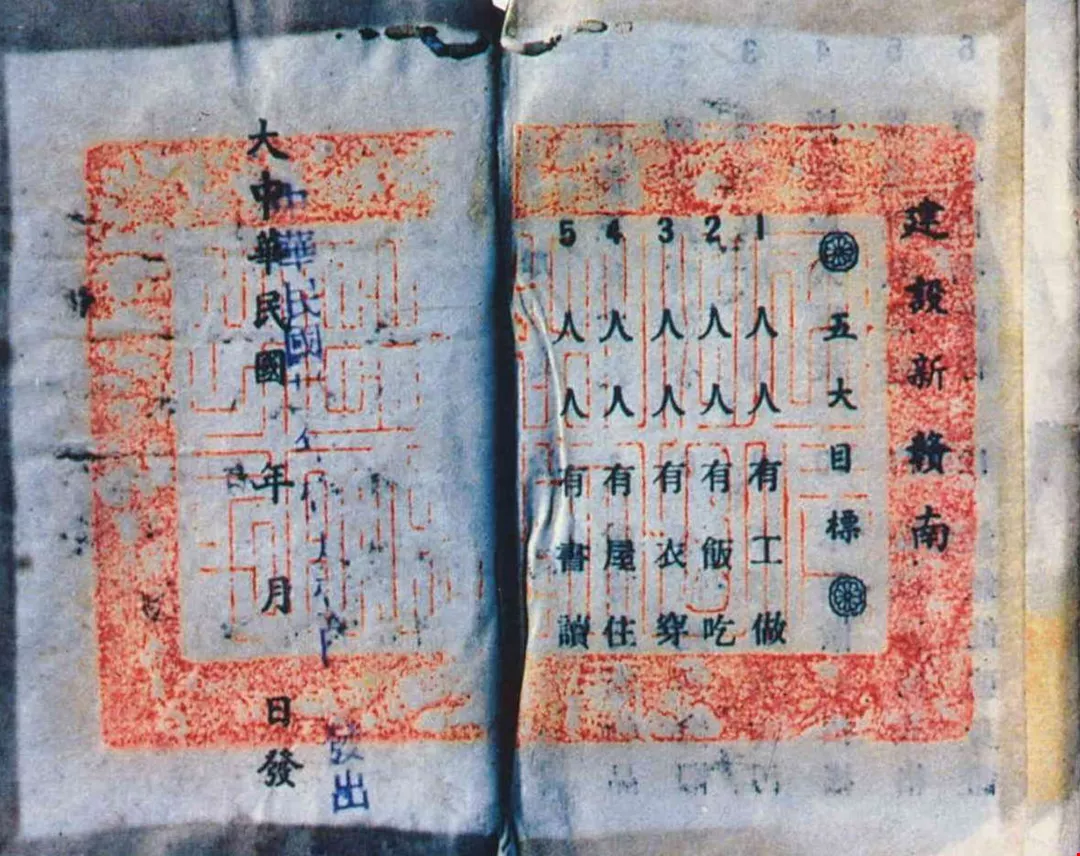 建設新贛南
五大目標
1 人人有工做
2 人人有飯吃
3 人人有衣穿
4 人人有屋住
5 人人有書讀
大中華民國 年 月 日發
中華民國
發出